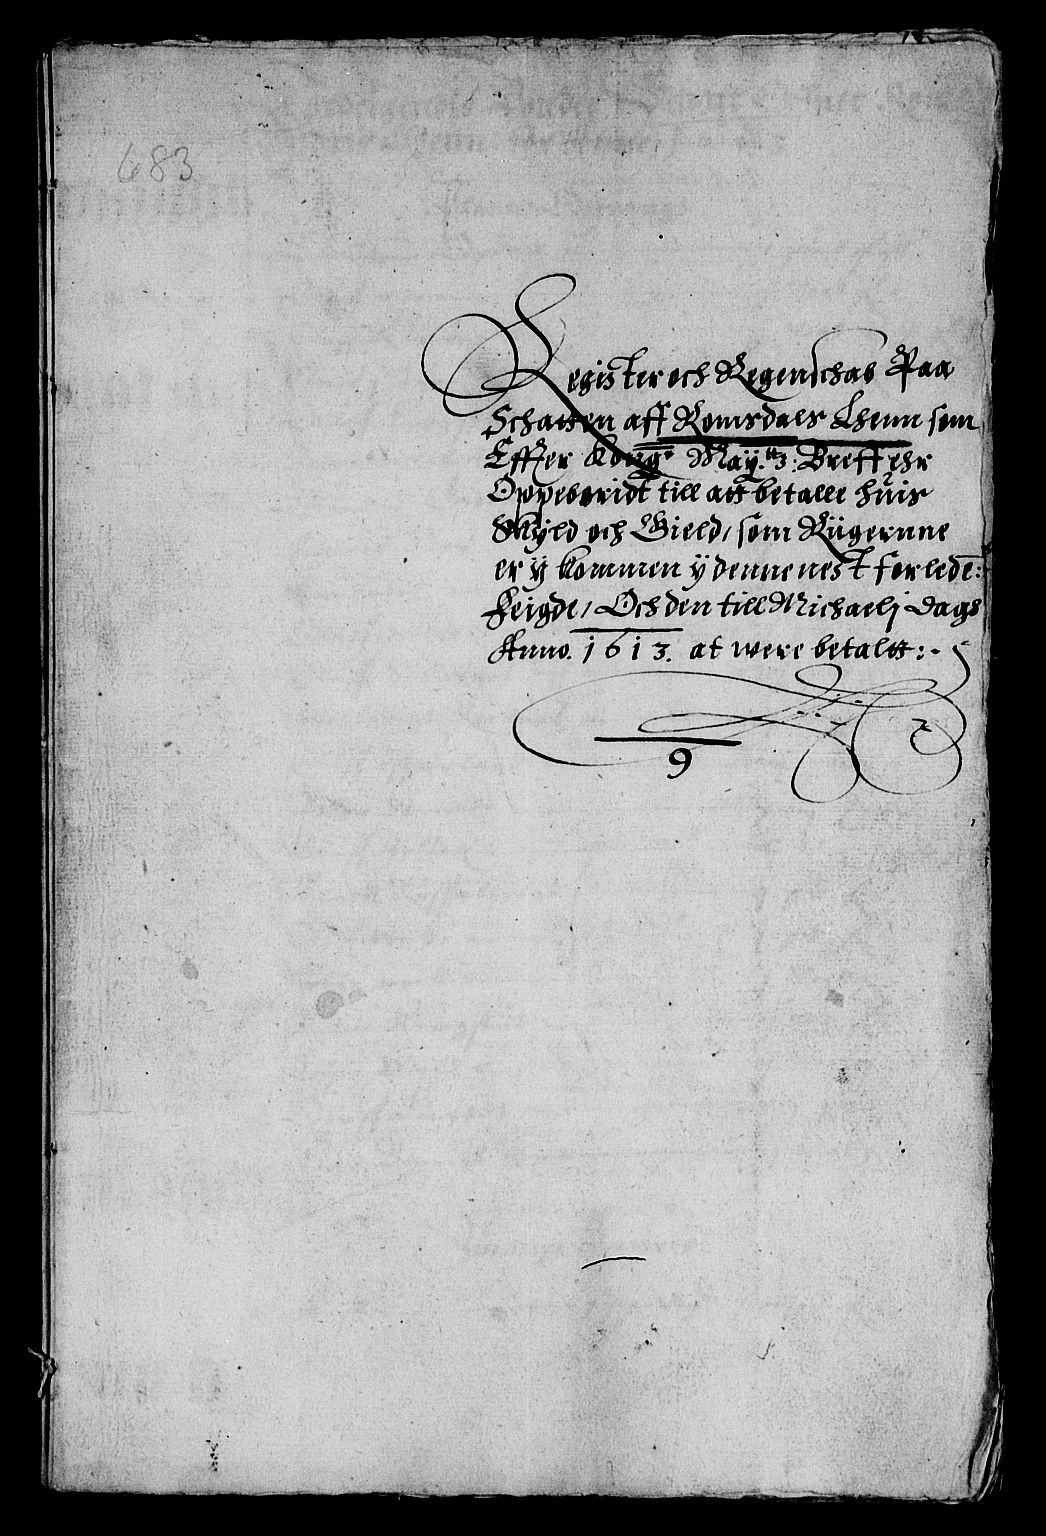 683
Register och Regenschab Paa
Schatten aff Romsdaels Lhenn som
Effter Kong: May:tt3: Breff ehr
Oppeboridt till att betalle huis
Skyld och Gield, som Rÿgernne
er ÿ kommen ÿ denne nest forleden:
Feigde, Och den till Michaelj dags
Anno. 1613. at were betaltt:-
9